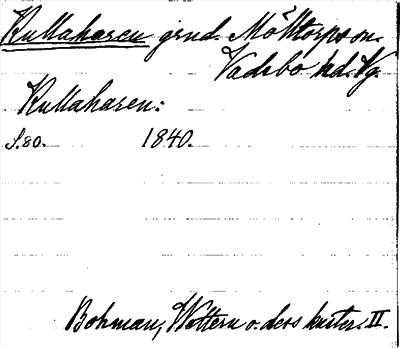 Kullaharen grnd. Mölltorps sn.
Vadsbo hd. Vg.
Kullaharen:
S.80. 1840.
Bohman, Wettern o. dess kuster. II.